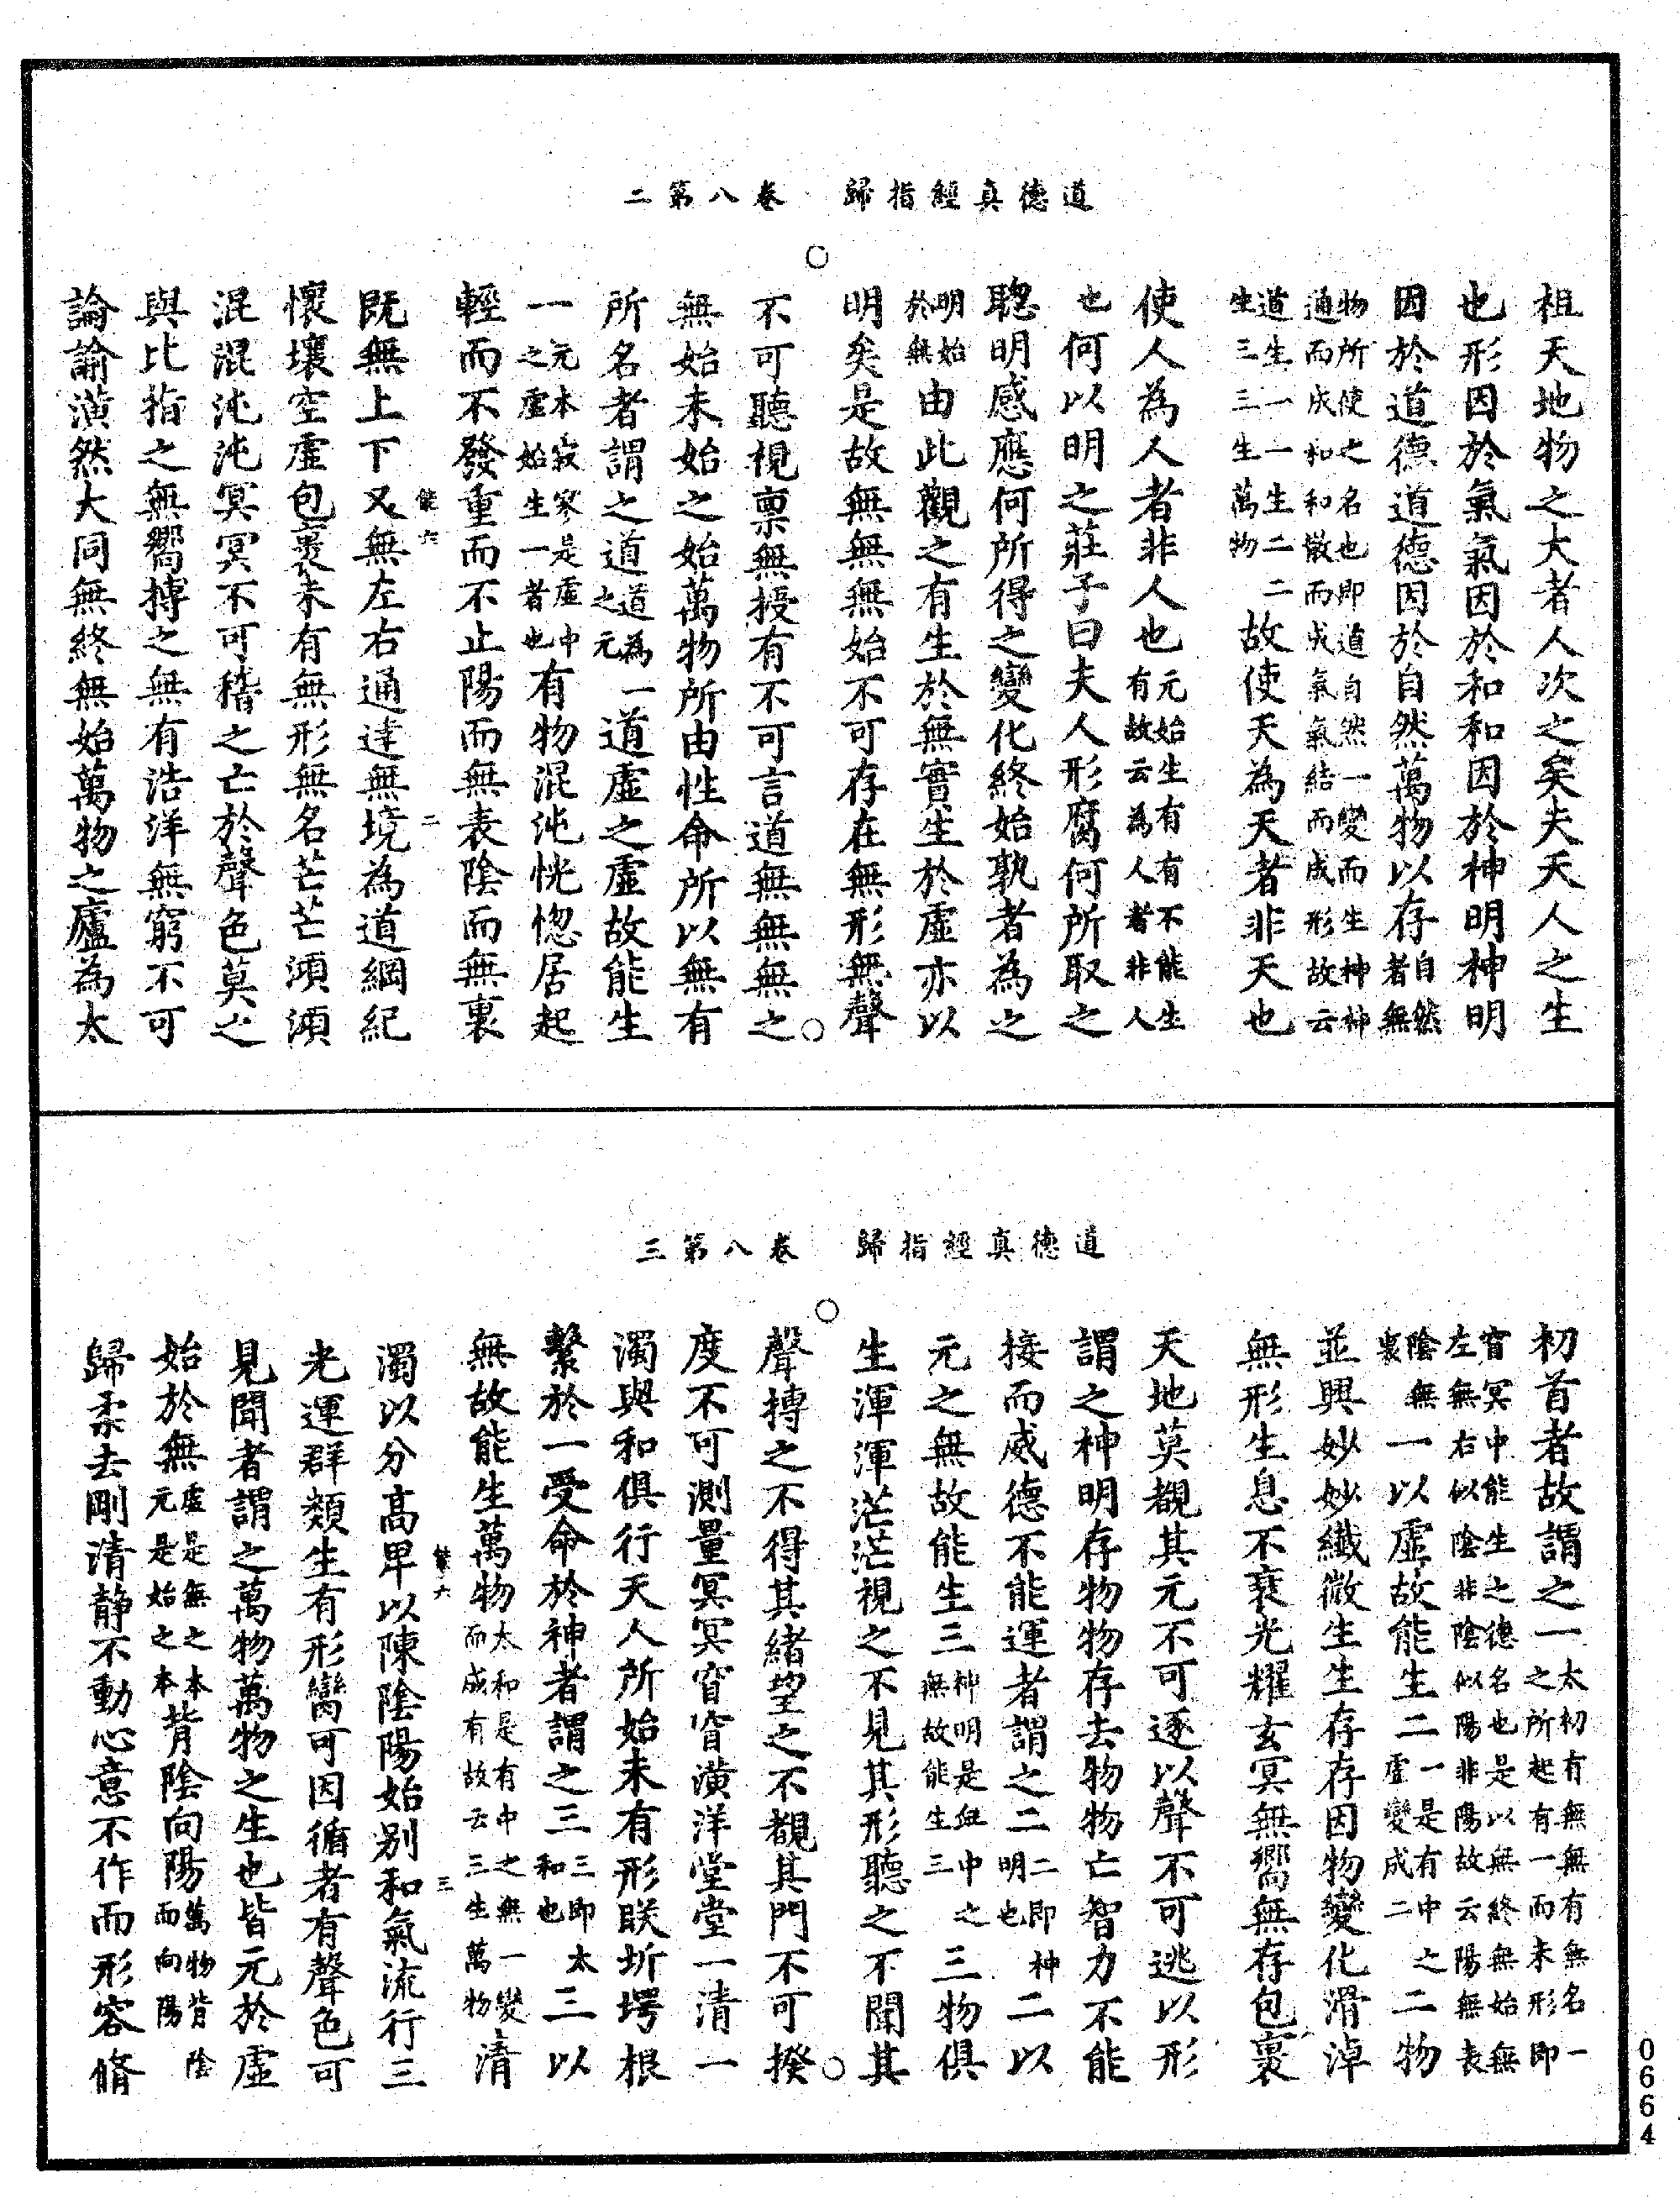 道德真經指歸　卷八第二
祖天地物之大者人次之矣夫天人之生
也形因於氣氣因於和和因於神明神明
因於道德道德因於自然萬物以存自然者無
物所使之名也即道自然一變而生神神
通而成和和散而成氣氣結而成形故云
道生一一生二二
生三三生萬物故使天為天者非天也
使人為人者非人也元始生有有不能生
有故云為人者非人
也何以明之莊子曰夫人形腐何所取之
聰明感應何所得之變化終始孰者為之
明始
於無由此觀之有生於無實生於虛亦以
明矣是故無無無始不可存在無形無聲
不可聽視稟無授有不可言道無無無之
無始未始之始萬物所由性命所以無有
所名者謂之道道為
之元一道虛之虛故能生
一元本寂寥是虛中
之虛始生一者也有物混沌恍惚居起
輕而不發重而不止陽而無表陰而無裏
能六　二
既無上下又無左右通達無境為道綱紀
懷壤空虛包裹未有無形無名芒芒澒澒
混混沌沌冥冥不可稽之亡於聲色莫之
與比指之無嚮搏之無有浩洋無窮不可
論諭潢然大同無終無始萬物之廬為太
道德真經指歸　卷八第三
初首者故謂之一太初有無無有無名一
之所起有一而未形即
窅冥中能生之德名也是以無終無始無
左無右似陰非陰似陽非陽故云陽無表
陰無
裏一以虛故能生二一是有中之
虛變成二二物
並興妙妙纖微生生存存因物變化滑淖
無形生息不衰光耀玄冥無嚮無存包裹
天地莫覩其元不可逐以聲不可逃以形
謂之神明存物物存去物物亡智力不能
接而威德不能運者謂之二二即神
明也二以
元之無故能生三神明是無中之
無故能生三三物俱
生渾渾茫茫視之不見其形聽之不聞其
聲搏之不得其緒望之不覩其門不可揆
度不可測量冥冥窅窅潢洋堂堂一清一
濁與和俱行天人所始未有形朕圻堮根
繫於一受命於神者謂之三三即太
和也三以
無故能生萬物太和是有中之無一變
而成有故云三生萬物清
能六　三
濁以分高卑以陳陰陽始别和氣流行三
光運群類生有形臠可因循者有聲色可
見聞者謂之萬物萬物之生也皆元於虛
始於無虛是無之本
元是始之本背陰向陽萬物皆陰
而向陽
歸柔去剛清静不動心意不作而形容脩
0664